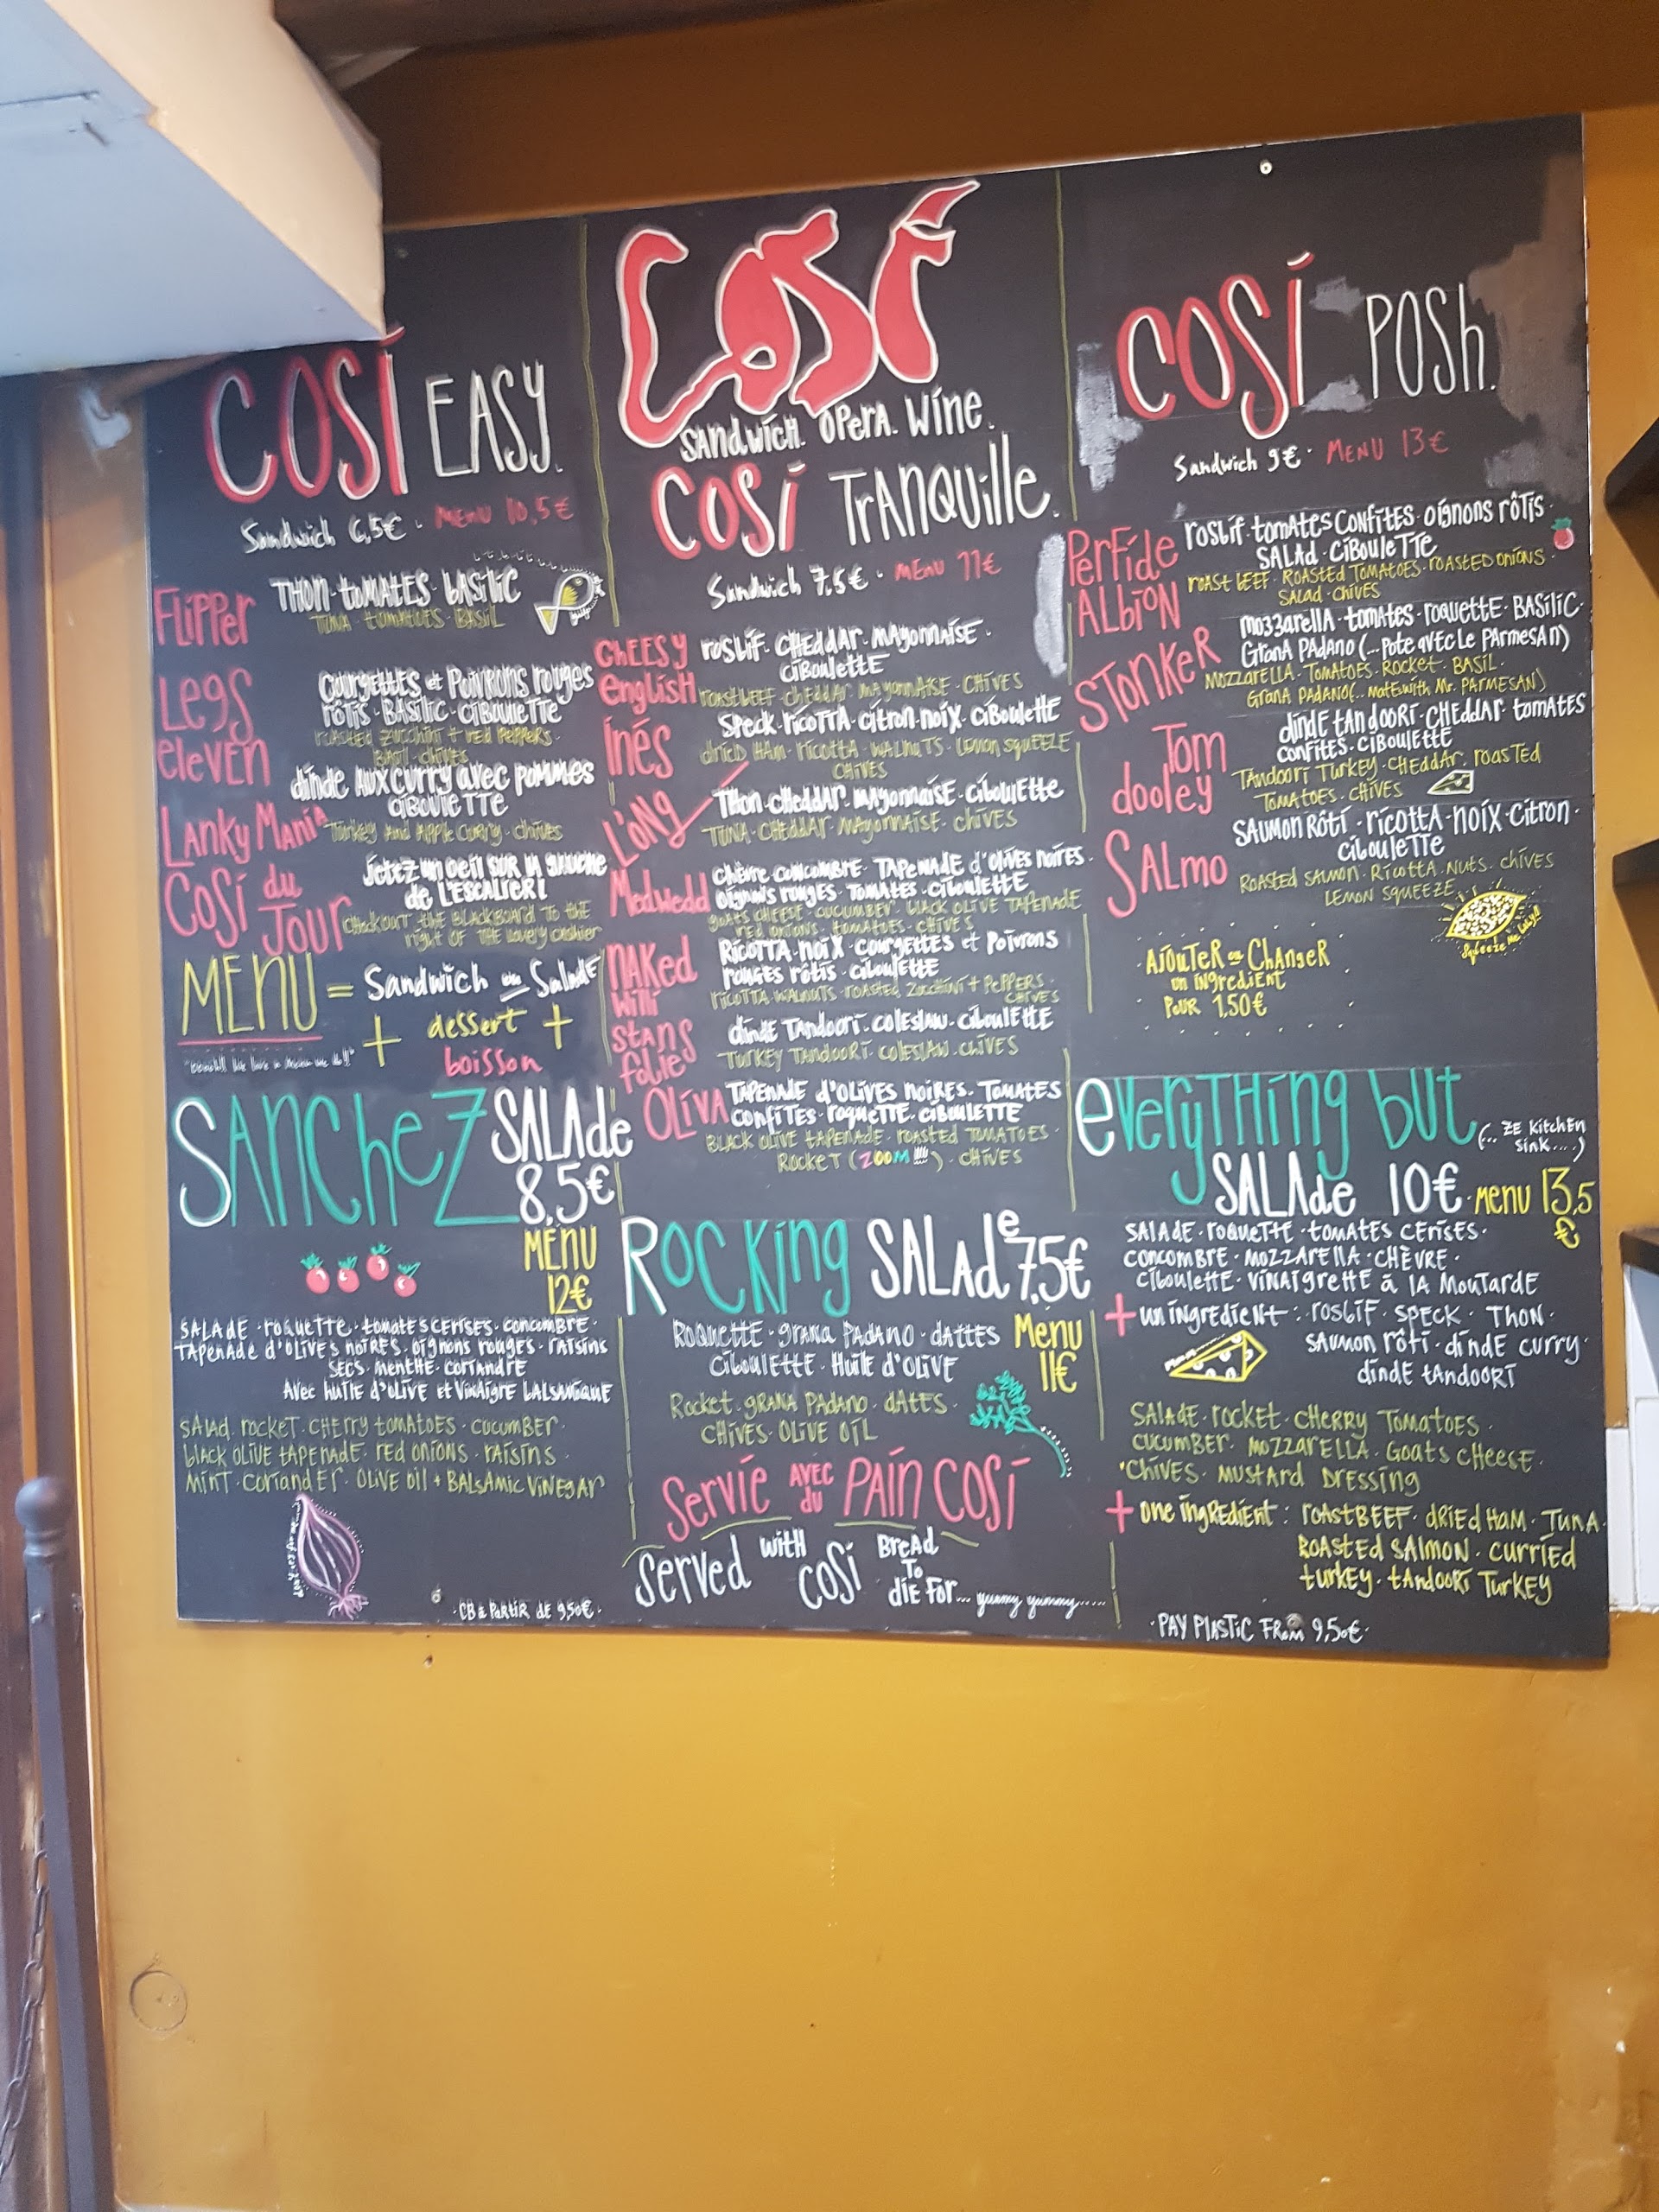 COSÍ EASY.
Sandwich 6,5€ · MENU 10,5€
FLIPPER
THON · TOMATES · BASILIC
TUNA · TOMATOES · BASIL
LEGS ELEVEN
COURGETTES et POIVRONS ROUGES
RÔTIS · BASILIC · CIBOULETTE
ROASTED ZUCCHINI + RED PEPPERS ·
BASIL · CHIVES
LANKY MANIA
DINDE AUX CURRY AVEC POMMES
CIBOULETTE
TURKEY AND APPLE CURRY · CHIVES
COSÍ du JOUR
JETEZ UN OEIL SUR LA GAUCHE
de L'ESCALIER!
CHECKOUT THE BLACKBOARD TO THE
right OF THE lovely cashier
MENU = Sandwich ou Salade
+ dessert +
boisson
SANCHEZ SALAde
8,5€
MENU
12€
SALADE · roquette · tomates cerises · concombre ·
TAPENADE d'OLIVES NOIRES · oignons rouges · raisins
secs · menthe · coriandre
AVEC HUILE d'OLIVE et VINAIGRE BALSAMIQUE
SALAD · ROCKET · CHERRY TOMATOES · CUCUMBER ·
BLACK OLIVE TAPENADE · red onions · raisins ·
MINT · CORIANDER · OLIVE oil + BALSAMIC VINEGAR
· CB à PARTIR DE 9,50€ ·
COSÍ
SANDWICH. OPERA. WINE.
COSÍ TRANQUILLE.
Sandwich 7,5€ · MENU 11€
CHEESY english
roSBIF · CHEDDAR · MAYONNAISE ·
CIBOULETTE
ROAST BEEF · CHEDDAR · MAYONNAISE · CHIVES
INÉS
SPECK · RICOTTA · CITRON · NOIX · CIBOULETTE
DRIED HAM · RICOTTA · WALNUTS · LEMON SQUEEZE
CHIVES
L'ONG
THON · CHEDDAR · MAYONNAISE · CIBOULETTE
TUNA · CHEDDAR · MAYONNAISE · CHIVES
Medwedd
CHÈVRE · CONCOMBRE · TAPENADE d'OLIVES NOIRES ·
OIGNONS ROUGES · TOMATES · CIBOULETTE
GOATS CHEESE · CUCUMBER · BLACK OLIVE TAPENADE
RED ONIONS · TOMATOES · CHIVES
NAKED WILLI
RICOTTA · NOIX · COURGETTES et POIVRONS
ROUGES RÔTIS · CIBOULETTE
RICOTTA · WALNUTS · ROASTED ZUCCHINI + PEPPERS ·
CHIVES
STANS folie
dinde TANDOORI · COLESLAW · CIBOULETTE
TURKEY TANDOORI · COLESLAW · CHIVES
OLIVA
TAPENADE d'OLIVES NOIRES · TOMATES
CONFITES · roquette · CIBOULETTE
BLACK OLIVE TAPENADE · roasted TOMATOES ·
ROCKET (ZOOM !!!!) · CHIVES
ROCKING SALADe 7,5€
Menu
11€
ROQUETTE · GRANA PADANO · DATTES
CIBOULETTE · HUILE d'OLIVE
Rocket · GRANA PADANO · DATES ·
CHIVES · OLIVE OIL
Servie AVEC du PAIN COSÍ
Served WITH COSÍ BREAD TO DIE FOR... yummy yummy.....
COSÍ POSH.
Sandwich 9€ · MENU 13€
PERFIDE ALBION
rosbif · TOMATES CONFITES · oignons rôtis ·
SALAD · CIBOULETTE
roast BEEF · ROASTED TOMATOES · ROASTED ONIONS ·
SALAD · CHIVES
STONKER
mozzarella · tomates · roquette · BASILIC ·
GRANA PADANO (...pote avec LE PARMESAN)
MOZZARELLA · TOMATOES · ROCKET · BASIL ·
GRANA PADANO (..mate with Mr. PARMESAN)
Tom dooley
dinde tandoori · CHEDDAR · tomates
confites · CIBOULETTE
TANDOORI TURKEY · CHEDDAR · roasted
TOMATOES · CHIVES
SALMO
SAUMON RÔTI · ricotta · noix · citron ·
CIBOULETTE
ROASTED SALMON · RICOTTA · NUTS · CHIVES
LEMON SQUEEZE
AJOUTER ou CHANGER
un ingredient
POUR 1,50€
everyTHing but (... ZE KITCHEN SINK....)
SALAde 10€ · menu 13,5€
SALADE · roquette · tomates cerises ·
concombre · mozzarella · CHÈVRE ·
Ciboulette · VINAIGRETTE à LA MOUTARDE
+ un ingredient : rosbif · SPECK · THON ·
SAUMON rôti · dinde curry ·
dinde tandoori
SALADE · rocket · CHERRY TOMATOES ·
CUCUMBER · MOZZARELLA · GOATS CHEESE ·
CHIVES · MUSTARD DRESSING
+ one ingredient : roastBEEF · DRIED HAM · TUNA ·
ROASTED SALMON · CURRIED
turkey · tandoori Turkey
· PAY PLASTIC FROM 9,50€ ·